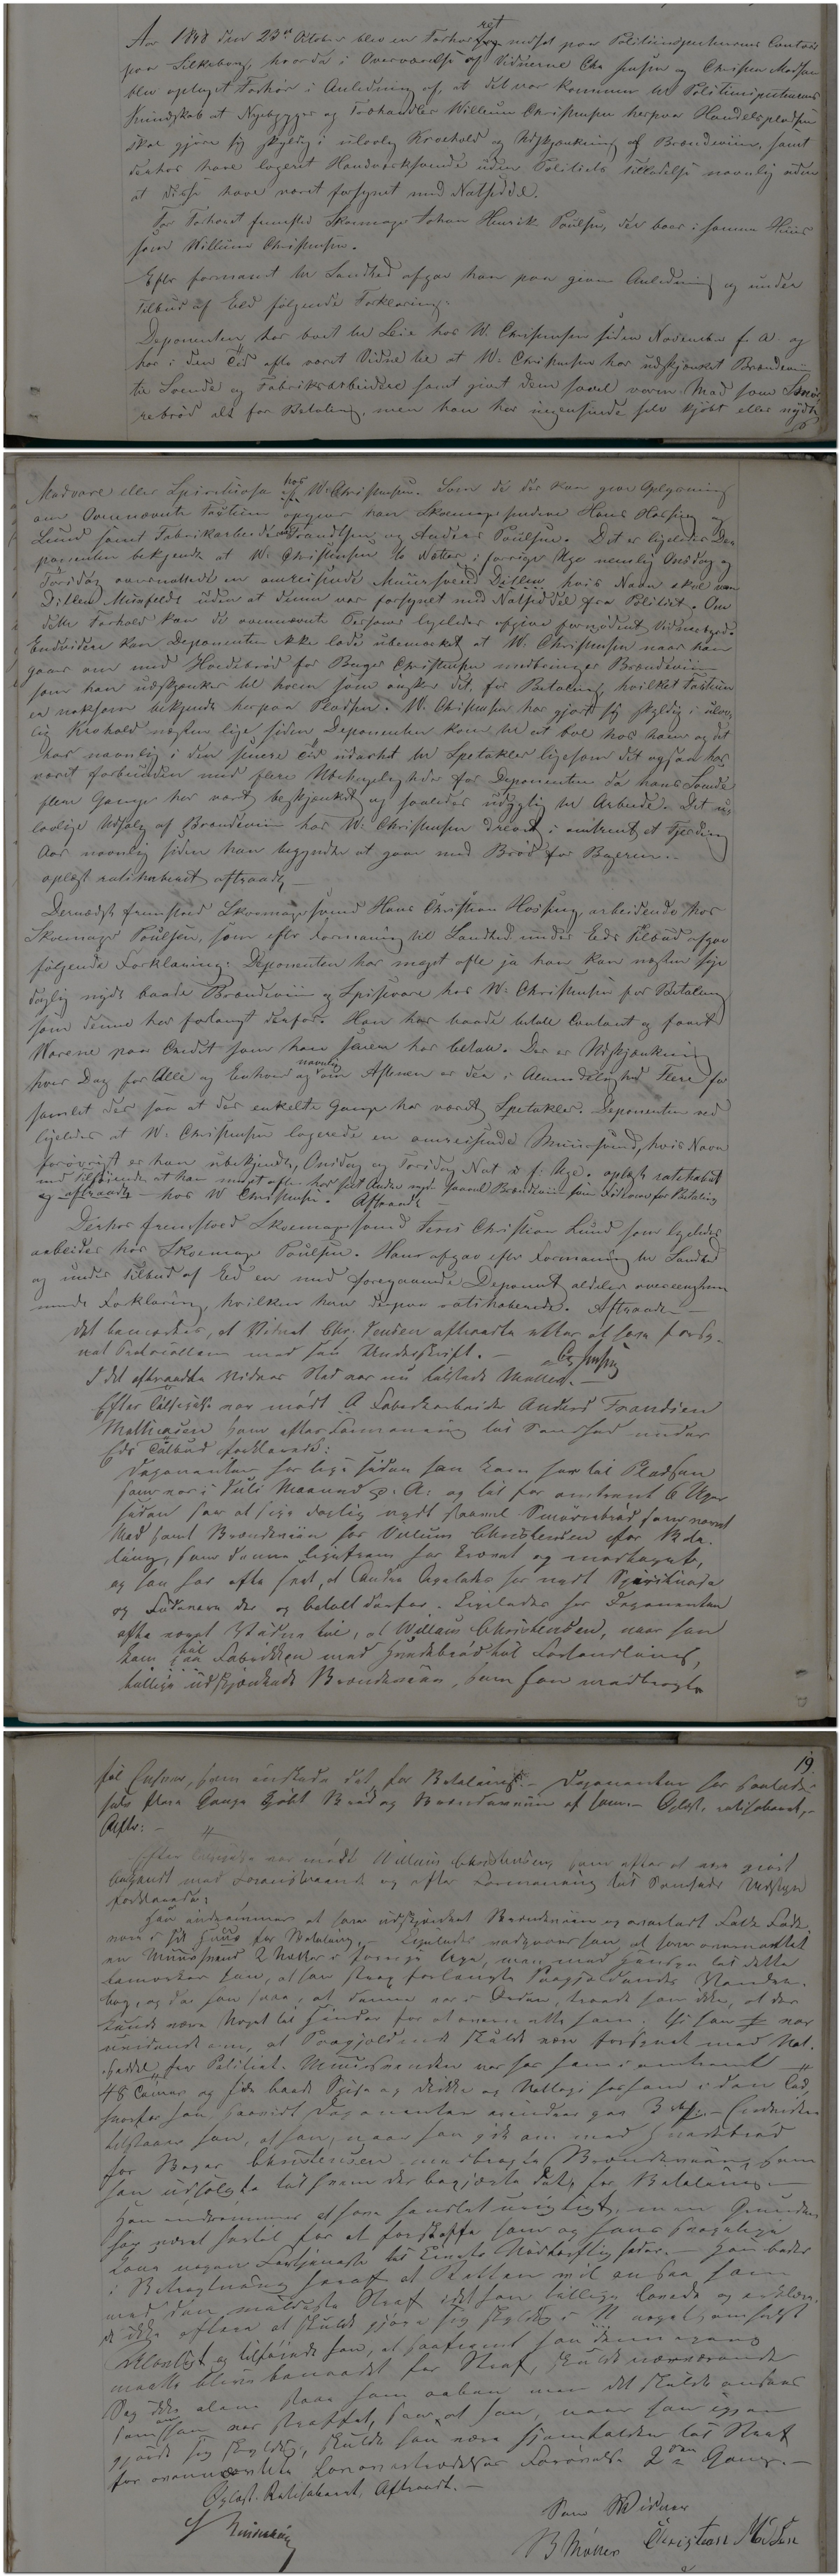 Aar 1848 den 23de October blev en Forhørsret nedsat paa Politiinspecteurens Contoir
paa Silkeborg, hvorda i Overværelse af Vidnerne Chr Jensen og Christen Madsen
blev optaget Forhør i Anledning af, at det var kommen til Politiinspecteurens
Kundskab at Nybygger og Brødhandler Willum Christensen herpaa Handelspladsen
skal gjøre sig skyldig i ulovlig Kroehold og Udskjænkning af Brændeviin, samt
derhos have logeret Haandværksvende uden Politiets Tilladelse navnlig uden
at disse have været forsynet med Natseddel.
For Forhøret fremstod Skomager Johan Henrik Poulsen, der boer i samme Huus
som Willum Christensen.
Efter formanet til Sandhed afgav han paa given Anledning og under
Tilbud af Eed følgende Forklaring:
Deponenten har boet til Leie hos W. Christensen siden November f. A. og
har i den Tid ofte været Vidne til at W. Christensen har udskjænket Brændeviin
til Svende og Fabriksarbeidere samt givet dem saavel varm Mad som Smør
rebrød alt for Betaling, men han har ingensinde selv kjøbt eller nydt
Madvare eller Spirituosa hos W. Christensen. Som de der kan give Oplysning
om Ovennævnte Factum opgiver han Skomagersvendene Hans Hossing og
Lund samt Fabrikarbeiderne Frandsen og Anders Poulsen. Det er ligeledes De
ponenten bekjendt at W. Christensen to Nætter i forrige Uge nemlig Onsdag og
Torsdag overnattede en omreisende Muursvend Ditlev hvis Navn skal være
Ditlev Munfeldt uden at denne var forsynet med Natseddel fra Politiet. Om
dette Forhold kan de ovennævnte Personer ligeledes afgive fornødent Vidnesbyrd.
Endvidere kan Deponenten ikke lade ubemærket at W. Christensen naar han
gaaer om med Hvedebrød for Bager Christensen medbringer Brændeviin
som han udskjænker til hvem som ønsker det, for Betaling, hvilket Factum
er noksom bekjendt herpaa Pladsen. W. Christensen har gjort sig skyldig i ulov
lig Krohold næsten lige siden Deponenten kom til at boe hos ham og det
har navnlig i den senere Tid udartet til Spetakler ligesom det ogsaa har
været forbunden med flere Ubehageligheder for Deponenten da hans Svende
flere Gange har været beskjænket og saaledes udygtig til Arbeide. Det u
lovlige Udsalg af Brændeviin har W. Christensen drevet i omtrent et Fjerding
Aar navnlig siden han begyndte at gaae med Brød for Bageren.
oplæst ratihaberet aftraadt
Dernæst fremstod Skomagersvend Hans Christian Hossing, arbeidende hos
Skomager Poulsen, som efter Formaning til Sandhed under Eeds Tilbud afgav
følgende Forklaring: Deponenten har meget ofte ja han kan næsten sige
daglig nydt baade Brændeviin og Spisevare hos W. Christensen for Betaling
som denne har forlangt derfor. Han har baade betalt Contant og faaet
Varene paa Credit som han senere har betalt. Der er Udskjænkning
hver Dag for Alle og Enhver og navnlig om Aftenen er der i Almindelighed Flere for
samlet der saa at der enkelte Gange har været Spetakler. Deponenten ved
ligeledes at W. Christensen logerede en omreisende Muursvend, hvis Navn
forøvrigt er ham ubekjendt, Onsdag og Torsdag Nat i f. Uge. oplæst ratihaberet
med Tilføiende at han meget ofte har seet Andre nyde saavel Brændeviin som Fødevare for Betaling
og aftraadt - hos W Christensen. Aftraadt
Derhos fremstod Skomagersvend Jens Christian Lund som ligeledes
arbeider hos Skomager Poulsen. Han afgav efter Formaning til Sandhed
og under Tilbud af Eed en med foregaaende Deponent aldeles overeensstem
mende Forklaring, hvilken han derpaa ratihaberede. Aftraadt
Det bemærkes, at Vidnet Chr. Jensen aftraadte efter at have forsy-
net Protocollen med sin Underskrift. - Chr Jensen
I det aftraadte Vidnes Sted var nu tilstede Møller.
Efter Tilsigelse var mødt Fabrikarbeider Anders Frandsen
Mathiasen som efter Formaning til Sandhed under
Eds Tilbud forklarede:
Deponenten har lige siden han kom her til Pladsen
som var i Juli Maaned d. A. og til for omtrent 6 Uger
siden saa at sige daglig nydt saavel Smørrebrød som varm
Mad samt Brændeviin hos Villum Christensen for Beta-
ling, som denne ligefrem har krævet og modtaget,
og han har ofte seet, at Andre ligeledes har nydt Spirituosa
og Fødevare der og betalt derfor. Ligeledes har Deponenten
ofte været Vidne til, at Willum Christensen, naar han
kom til Fabrikken med Hvedebrød til Forhandling,
tillige udskjænkede Brændeviin, som han medbragte
til Enhver, som ønskede det, for Betaling. - Deponenten har saaledes
selv flere Gange kjøbt Brød og Brændeviin af ham. - Oplæst, ratihaberet,
Aftr: -
Efter Tilsigelse var mødt Willum Christensen som efter at være gjort
bekjendt med Foranstaaende og efter Formaning til Sandheds Udsigende
forklarede:
Han indrømmer at have udskjænket Brændeviin og overladt Folk Føde-
vare i sit Huus for Betaling. - Ligeledes vedgaaer han, at have overnattet
en Muursvend 2 Nætter i forrige Uge, men med Hensyn til dette
bemærker han, at han strax forlangte Paagjældendes Vandre-
bog, og da han saae, at denne var i Orden, troede han ikke, at der
kunde være Noget til Hinder for at overnatte ham. Thi han var
uvidende om, at Paagjældende skulde være forsynet med Nat-
seddel fra Politiet. Muursvenden var hos ham i omtrent
48 Timer og fik baade Spise og Drikke og Natleie hos ham i den Tid,
hvorfor han, saavidt Deponenten erindrer gav 3 - Endvidere
tilstaaer han, at han, naar han gik om med Hvedebrød
for Bager Christensen medbragte Brændeviin, som
han udsolgte til hvem der begjærte det, for Betaling. -
Han indrømmer at have handlet urigtigt, men Grunden
har været hertil for at forskaffe ham og hans svagelige
Kone nogen Fortjeneste til Livets Nødtørftigheder. - Han beder
i Betragtning heraf at Retten vil ansee ham
med den mildeste Straf idet han tillige lovede og erklære-
de ikke oftere at skulde gjøre sig skyldig i noget saadant
Ulovligt og tilføiede han, at saafremt han denne Gang
maatte blive benaadet for Straf, skulde nærværende
Sag ikke alene staae ham aaben men det skulde ansees
som om han var straffet, saa at han, naar han igjen
gjorde sig skyldig, skulde han være hjemfalden til Straf
for ovennævnte Lovovertrædelser Forøvelse 2den Gang. -
Oplæst. Ratihaberet, Aftraadt. -
Som Vidner
B Møller Christen Madsen
19.